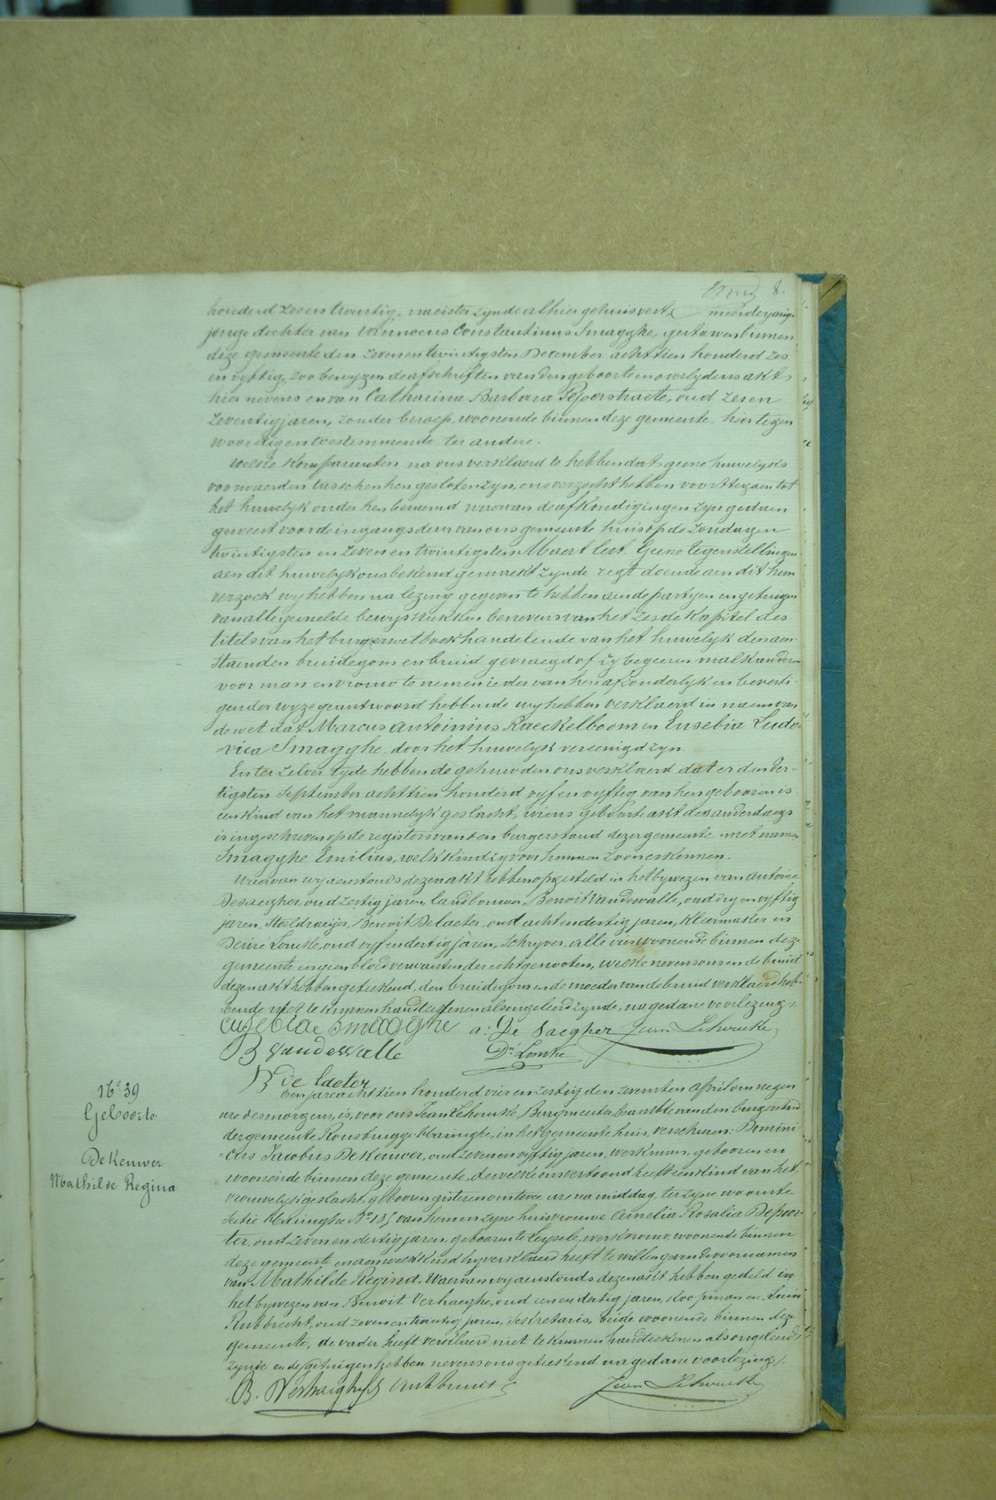 honderd zes en twintig, naeister zynde alhier gehuisvest, minderjarige
jonge dochter van Constantinus Smagghe, gestorven binnen
deze gemeente den zeven en twintigsten December achttien honderd zes
en vyftig, zoo bewyzen de afschriften van den geboorte en overlydens akte
hier nevens en van Catharina Barbara oud zes en
zeventig jaren, zonder beroep, woonende binnen deze gemeente, hier tegen
woordig en toestemmende ter andere.
Welke komparanten na ons verklaerd te hebben dat geene huwelyks
voorwaerden tusschen hen gesloten zyn, ons verzocht hebben voort te gaen tot
het huwelyk onder hen beraemd waervan de afkondigingen zyn gedaen
geweest voor de ingangsdeur van ons gemeente huis op de zondagen
twintigsten en zeven en twintigsten Maert lest. Geene tegenstellingen
aen dit huwelyk ons bekend gemaekt zynde regt doende aen dit hun
verzoek wy hebben na lezing gegeven te hebben aen de partyen en getuigen
van alle gemelde bewysstukken benevens van het zesde Kapitel des
titels van het burgerwetboek handelende van het huwelyk den aen-
staenden bruidegom en bruid gevraegd of zy begeeren malkander
voor man en vrouw te nemen ieder van hen afzonderlyk en bevesti-
gender wyze geantwoord hebbende wy hebben verklaerd in naem van
de wet dat Marcus Antoinius Kaeckelboom en Eusebia Ludo-
vica Smagghe door het huwelyk vereenigd zyn.
En ter zelver tyde hebben de gehuwden ons verklaerd dat er den der-
tigsten September achttien honderd vyf en vyftig van hen gebooren is
een kind van het mannelyk geslacht, wiens geboorte akt des anderdaegs
is ingeschreven op de registers van den burgerstand dezer gemeente met name
Smagghe Emilius, welk kind zy voor hunnen zoon erkennen.
Waervan wy aenstonds dezen akt hebben opgesteld in het bywezen van Antoine
Desaegher, oud zestig jaren, landbouwer, Benoit Vandewalle, oud dry en vyftig
jaren, Benoit De Laeter, oud acht en dertig jaren, kleermaker en
Deziré Lomke, oud vyf en dertig jaren, schryver, alle vier woonende binnen deze
gemeente en geen bloedverwanten der echtgenooten, welke nevens ons en de bruid
dezen akt hebben geteekend, den bruidegom en de moeder van de bruid verklaerd heb-
bende niet te kunnen handteekenen als ongeleerd zynde, na gedane voorlezing.
Eusebia Smagghe a: De Saegher
B Vandewalle
B De Laeter
N° 39
Geboorte
De Keuwer
Mathilde Regina
Een jaer achttien honderd vier en zestig den zevensten april om negen
ure des morgens, is, voor ons Jean Burgmeester, beambte van den burgerstand
der gemeente Rousbrugge-Haringhe, in het gemeente huis, verschenen: Domini-
cus Jacobus De Keuwer, oud zeven en vyftig jaren, werkman, gebooren en
woonende binnen deze gemeente, dewelke ons vertoond heeft een kind van het
vrouwelyk geslacht, gebooren gisteren om twee ure na middag, ter zyne woonste
sectie Haringhe N° van hem en zyne huisvrouwe Amelia Rosalia Depoor-
ter, oud zeven en dertig jaren, gebooren te Leysele, werkvrouw, woonende binnen
deze gemeente en aen welk kind hy verklaerd heeft te willen geven de voornamen
van Mathilde Regina. Waervan wy aenstonds dezen akt hebben gesteld in
het bywezen van Benoit Verhaeghe, oud een en dertig jaren, koopman en Louis
oud zeven en twintig jaren, secretaris, beide woonende binnen deze
gemeente, de vader heeft verklaerd niet te kunnen handteekenen als ongeleerd
zynde en de getuigen hebben nevens ons geteekend na gedane voorlezing.
B. Verhaeghe